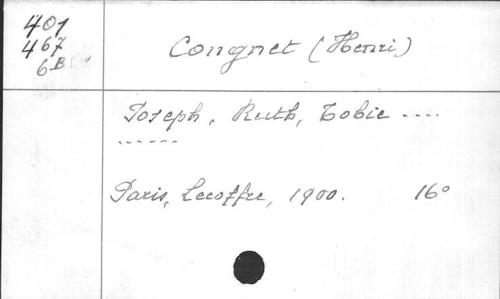 401
467
6B
Congnet (Henri)
Joseph, Ruth, Tobie ....
......
Paris, Lecoffre, 1900. 16°